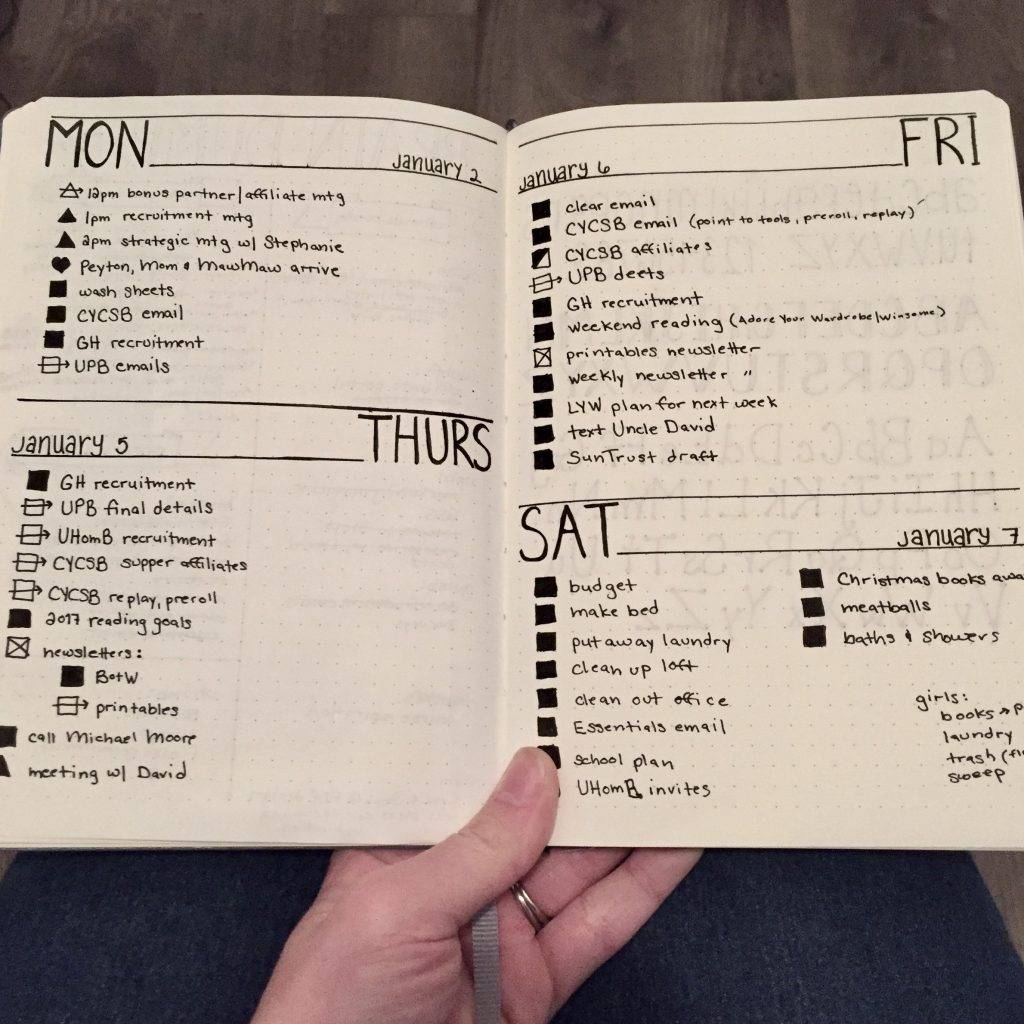 MON
January 2
12pm bonus partner/affiliate mtg
1pm recruitment mtg
2pm strategic mtg w/ Stephanie
Peyton, Mom & MawMaw arrive
wash sheets
CYCSB email
GH recruitment
UPB emails
January 5
THURS
GH recruitment
UPB final details
UHomB recruitment
CYCSB supper affiliates
CYCSB replay, preroll
2017 reading goals
newsletters:
BotW
printables
call Michael Moore
meeting w/ David
FRI
January 6
clear email
CYCSB email (point to tools, preroll, replay)
CYCSB affiliates
UPB deets
GH recruitment
weekend reading (Adore Your Wardrobe/Winsome)
printables newsletter
weekly newsletter "
LYW plan for next week
text Uncle David
SunTrust draft
SAT
January 7
budget
make bed
put away laundry
clean up loft
clean out office
Essentials email
school plan
UHomB invites
Christmas books
meatballs
baths & showers
girls:
books →
laundry
trash
sweep